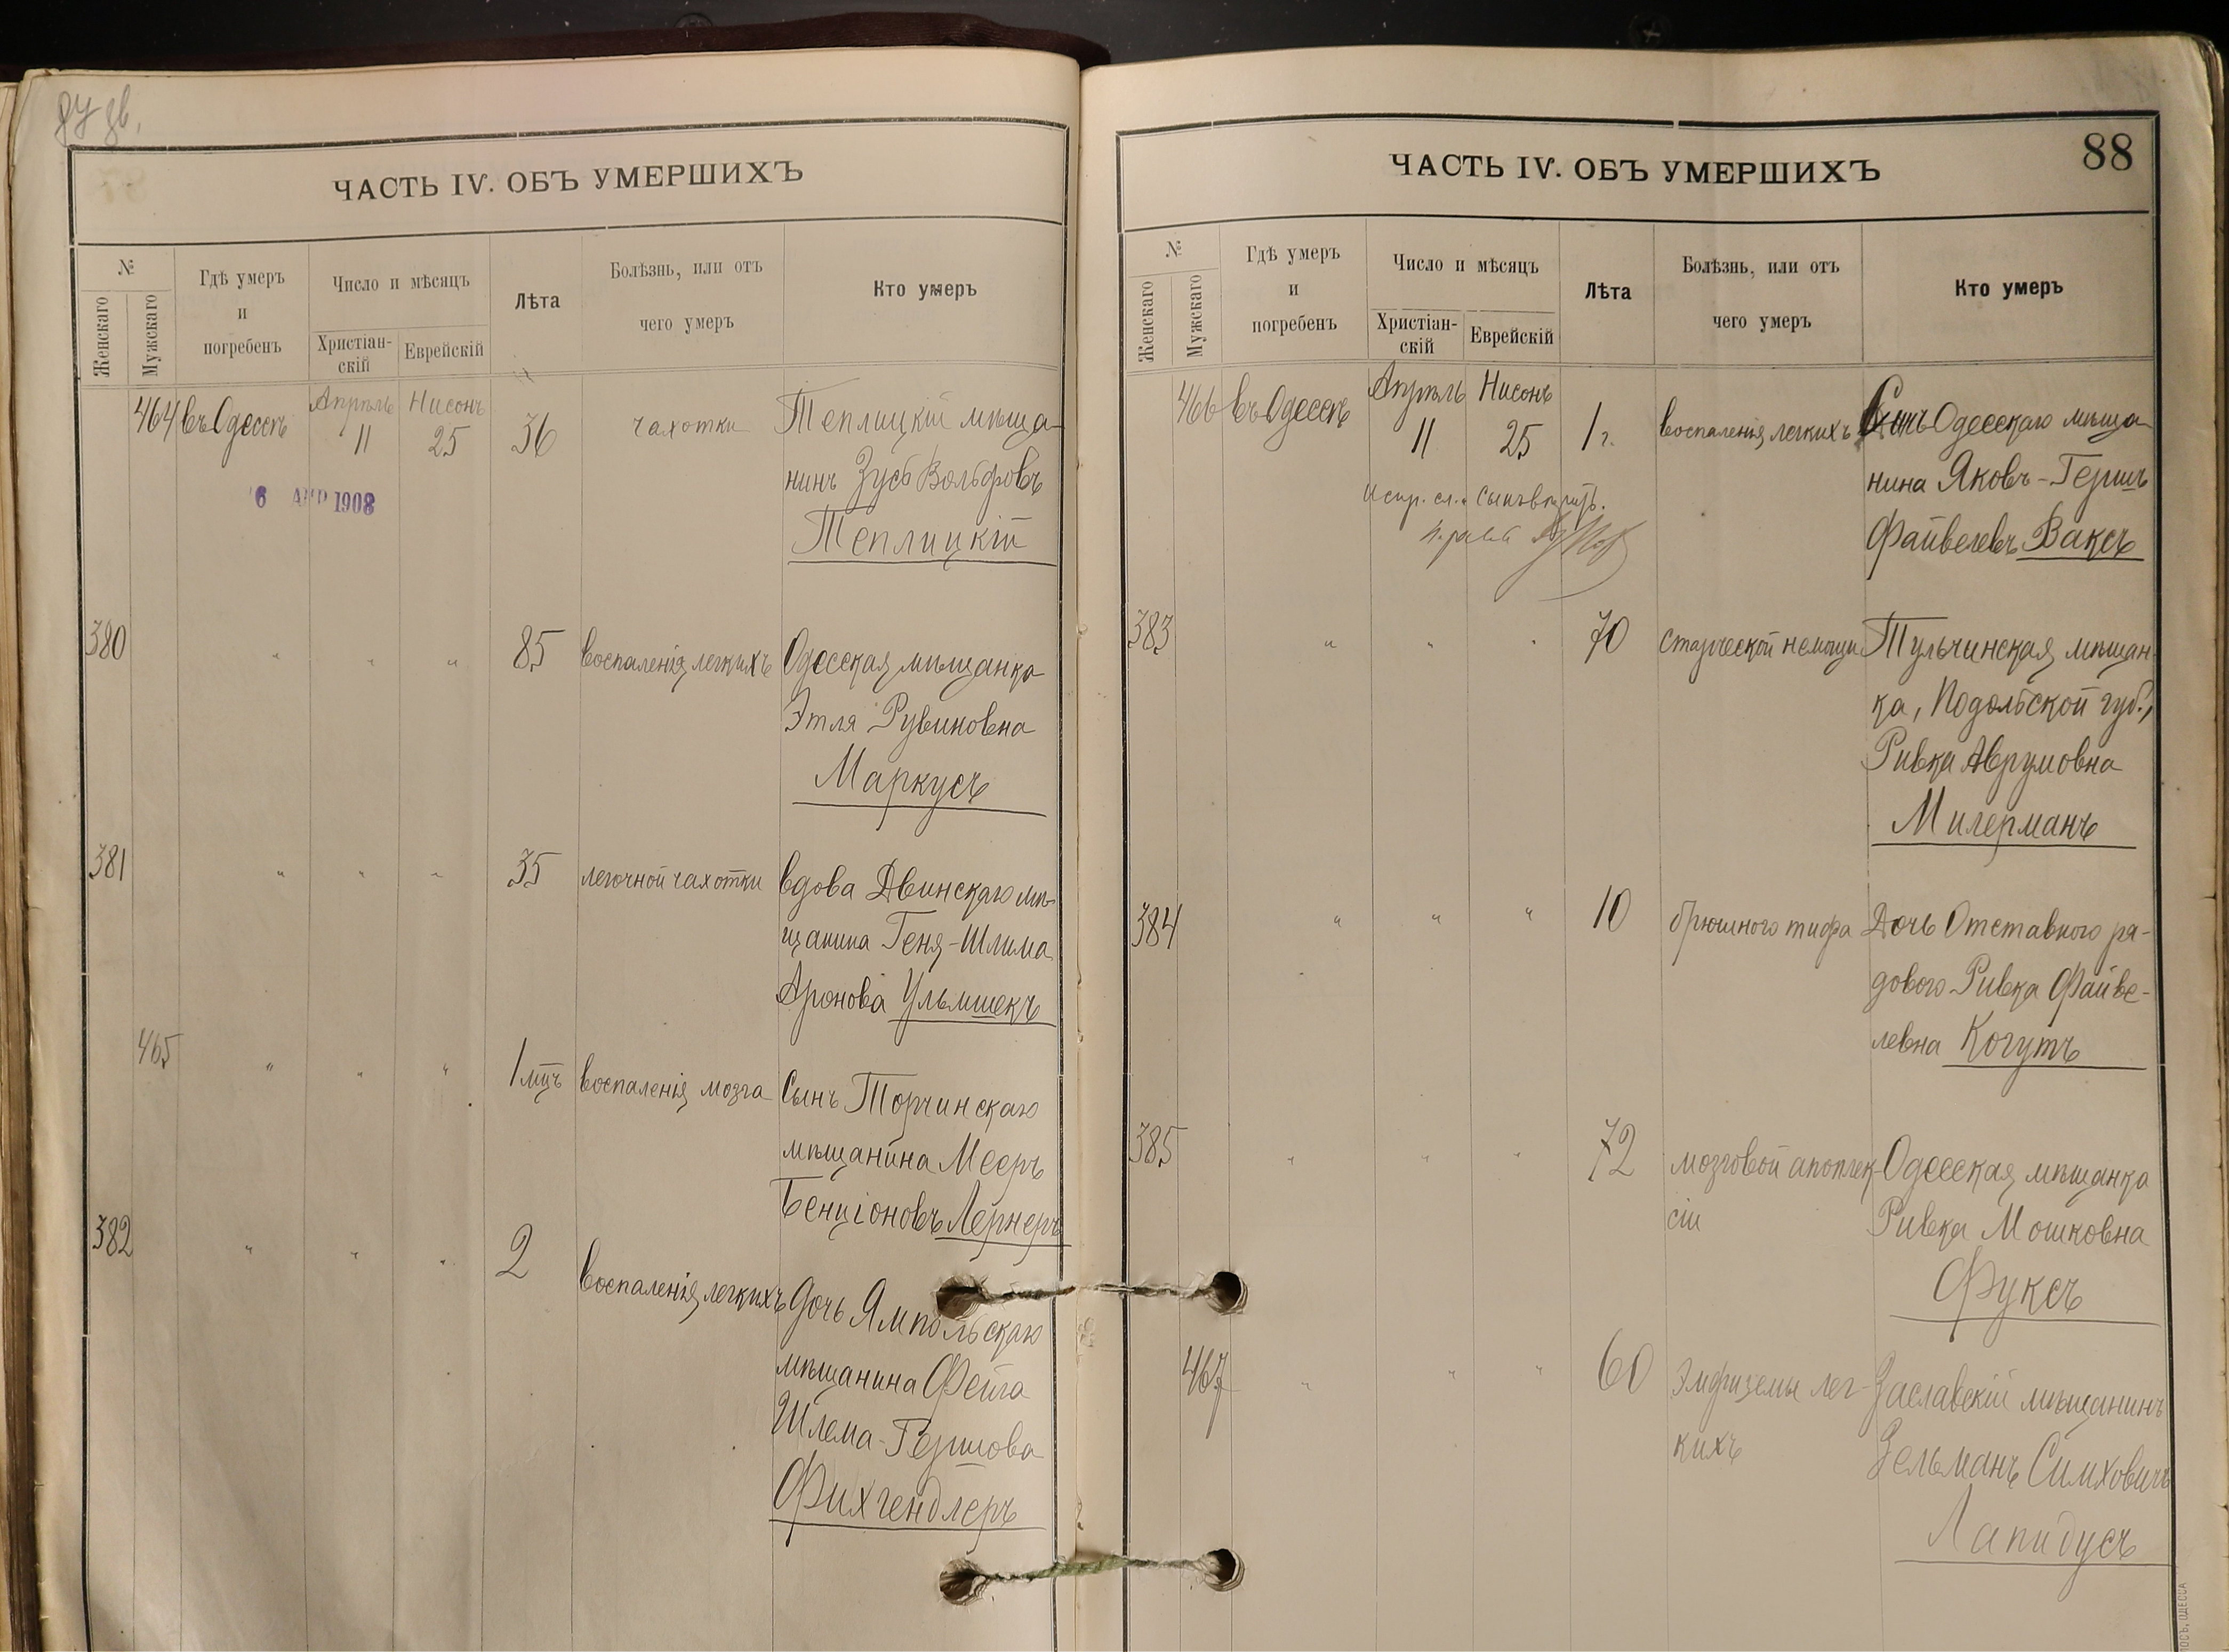 ЧАСТЬ IV. ОБЪ УМЕРШИХЪ
№
Женскаго
Мужскаго
Гдѣ умеръ
и
погребенъ
Число и мѣсяцъ
Христіан-
скій
Еврейскій
Лѣта
Болѣзнь, или отъ
чего умеръ
Кто умеръ
464 въ Одессѣ Апрѣль 11 Нисонъ 25 36 чахотки Теплицкій мѣща-
нинъ Зусь Вольфовъ
Теплицкій
6 АПР 1908
380 " " " 85 воспаленія легкихъ Одесская мѣщанка
Этля Рувиновна
Маркусъ
381 " " " 35 легочной чахотки вдова Двинскаго мѣ-
щанина Геня-Шлима
Аронова Ульмшекъ
465 " " " 1 мцъ воспаленія мозга Сынъ Торчинскаго
мѣщанина Мееръ
Бенціоновъ Лернеръ
382 " " " 2 воспаленія легкихъ дочь Ямпольскаго
мѣщанина Фейга
Шлема-Гершова
Фихгендлеръ
88
ЧАСТЬ IV. ОБЪ УМЕРШИХЪ
№
Женскаго
Мужскаго
Гдѣ умеръ
и
погребенъ
Число и мѣсяцъ
Христіан-
скій
Еврейскій
Лѣта
Болѣзнь, или отъ
чего умеръ
Кто умеръ
466 въ Одессѣ Апрѣль 11 Нисонъ 25 1 г. воспаленія легкихъ Сынъ Одесскаго мѣща-
нина Яковъ-Гершъ
Файвелевъ Ваксъ
Испр. сл. Сынъ
383 " " " 70 старческой немощи Тульчинская мѣщан-
ка, Подольской губ.,
Ривка Аврумовна
Милерманъ
384 " " " 10 брюшного тифа Дочь Отставного ря-
дового Ривка Файве-
левна Когутъ
385 " " " 72 мозговой апоплек- Одесская мѣщанка
сіи Ривка Мошковна
Фуксъ
467 " " " 60 Эмфиземы лег- Заславскій мѣщанинъ
кихъ Зельманъ Симховичъ
Лапидусъ
ОДЕССА